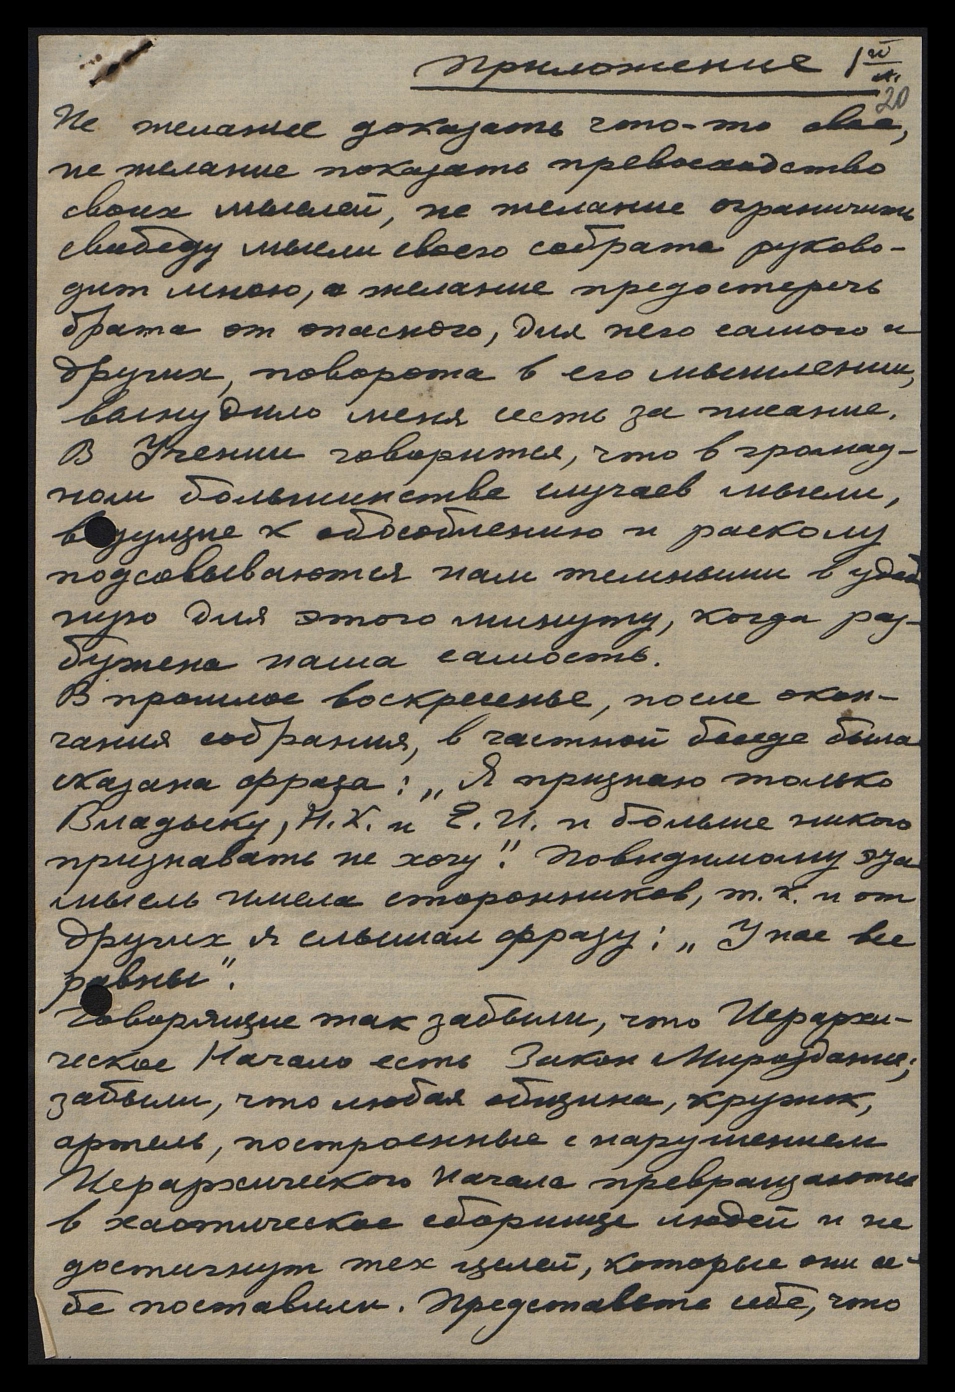 Приложение I
20
Не желание доказать что-то свое,
не желание показать превосходство
своих мыслей, не желание ограничить
свободу мысли своего собрата руково-
дит мною, а желание предостеречь
брата от опасного, для него самого и
других, поворота в его мышлении,
вынудило меня сесть за писание.
В Учении говорится, что в громад-
ном большинстве случаев мысли,
ведущие к обособлению и расколу
подсовываются нам темными в удоб
ную для этого минуту, когда раз-
бужена наша самость.
В прошлое воскресенье, после окон-
чания собрания, в частной беседе была
сказана фраза: „Я признаю только
Владыку, Н.К. и Е.И. и больше никого
признавать не хочу". Повидимому эта
мысль имела сторонников, т.к. и от
других я слышал фразу: „У нас все
равны".
Говорящие так забыли, что Иерархи-
ческое Начало есть Закон Мироздания;
забыли, что любая община, кружок,
артель, построенные с нарушением
Иерархического Начала превращаются
в хаотическое сборище людей и не
достигнут тех целей, которые они се-
бе поставили. Представьте себе, что